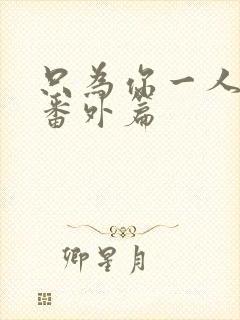 只为你一人
番外篇
卿星月